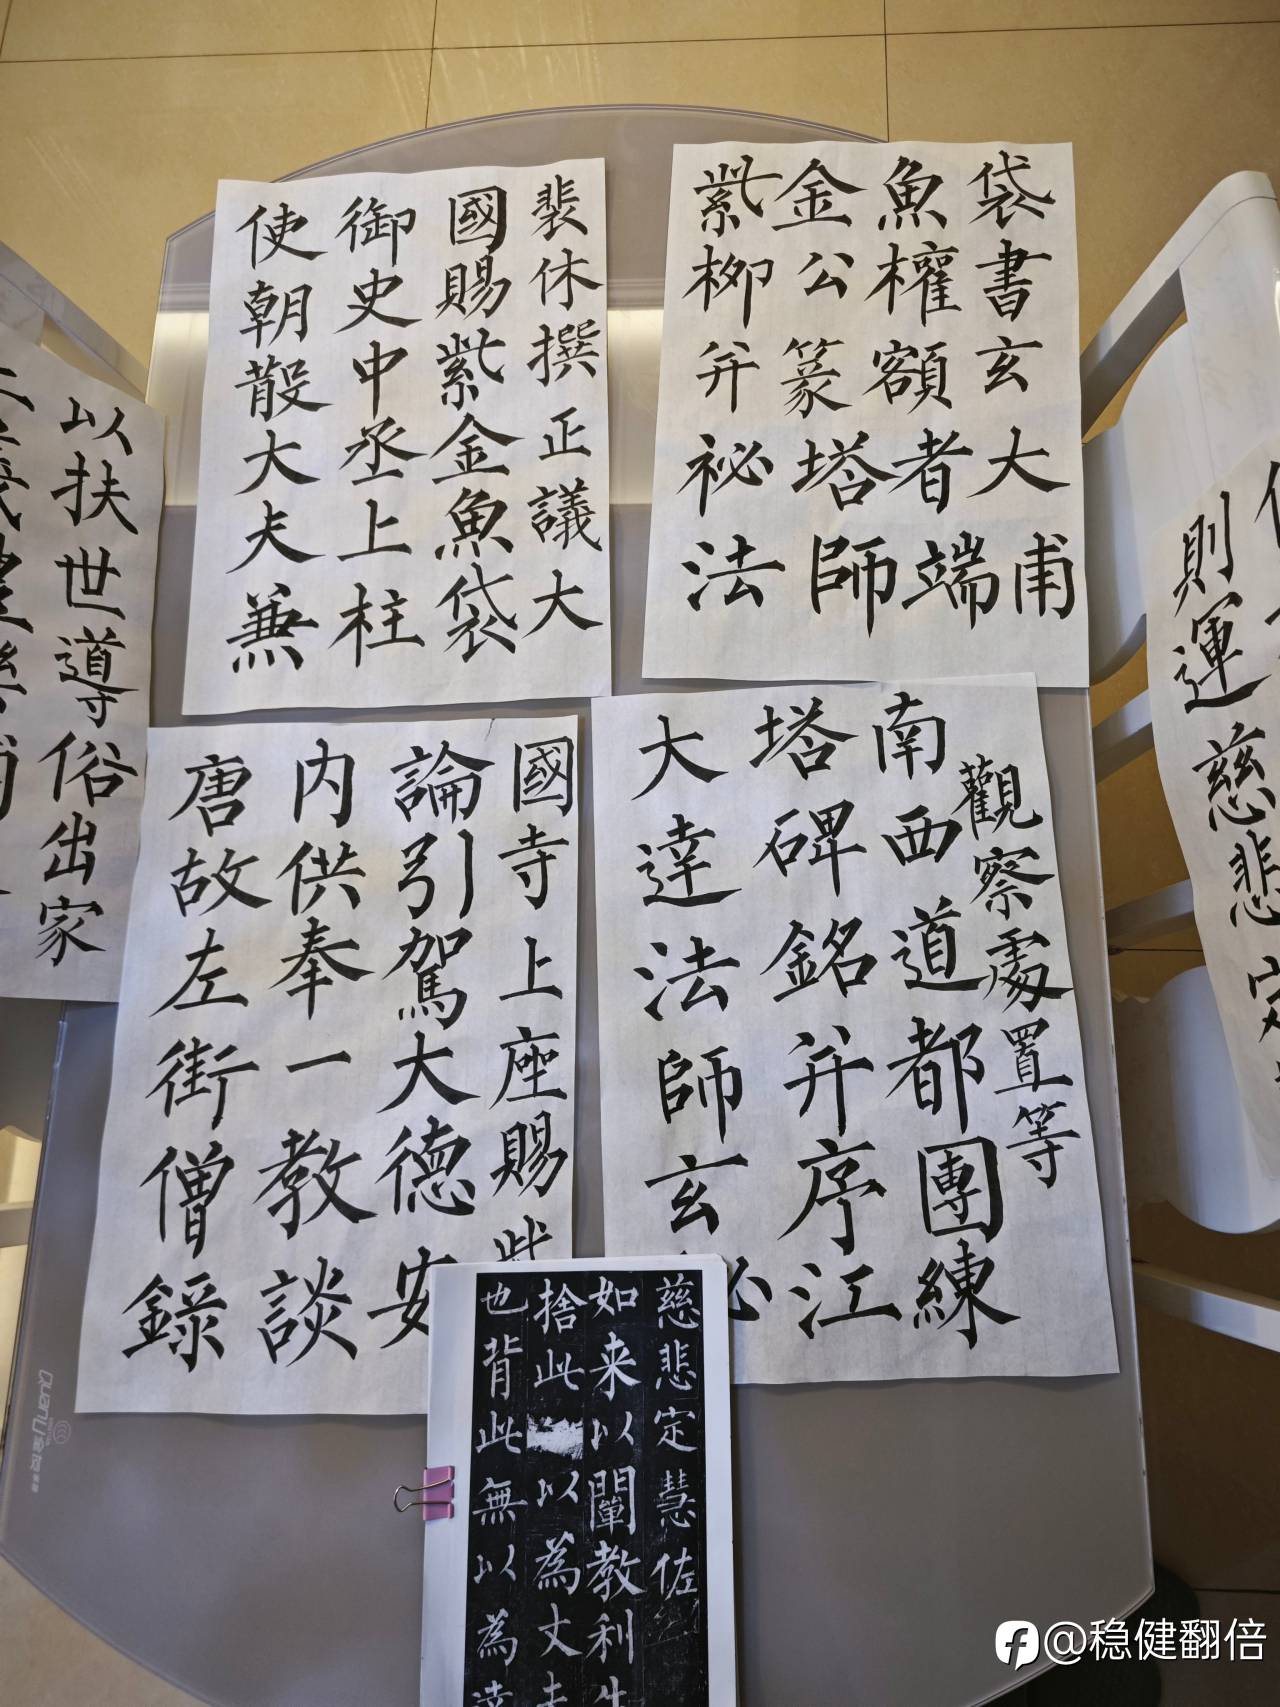 使朝散大夫兼
御史中丞上柱
國賜紫金魚袋
裴休撰正議大
紫金魚袋
柳公權書
并篆額玄
祕塔者大
法師端甫
唐故左街僧錄
内供奉一教談
論引駕大德安
國寺上座賜
大達法師玄
塔碑銘并序江
南西道都團練
觀察處置等
以扶世導俗出家
則運慈悲定
慈悲定慧佐
如来以闡教利生
捨此以為丈
也背此無以為達
@稳健翻倍